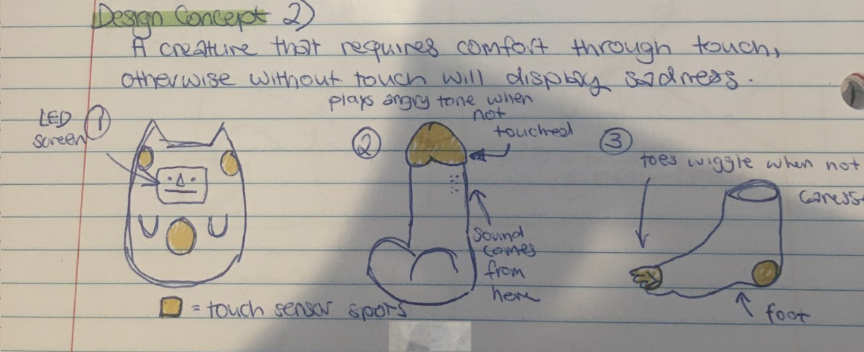 Design Concept 2)
A creature that requires comfort through touch,
otherwise without touch will display sadness.
LED
screen
①
②
plays angry tone when
not
touched
sound
comes
from
here
③
toes wiggle when not
caress
foot
= touch sensor spots